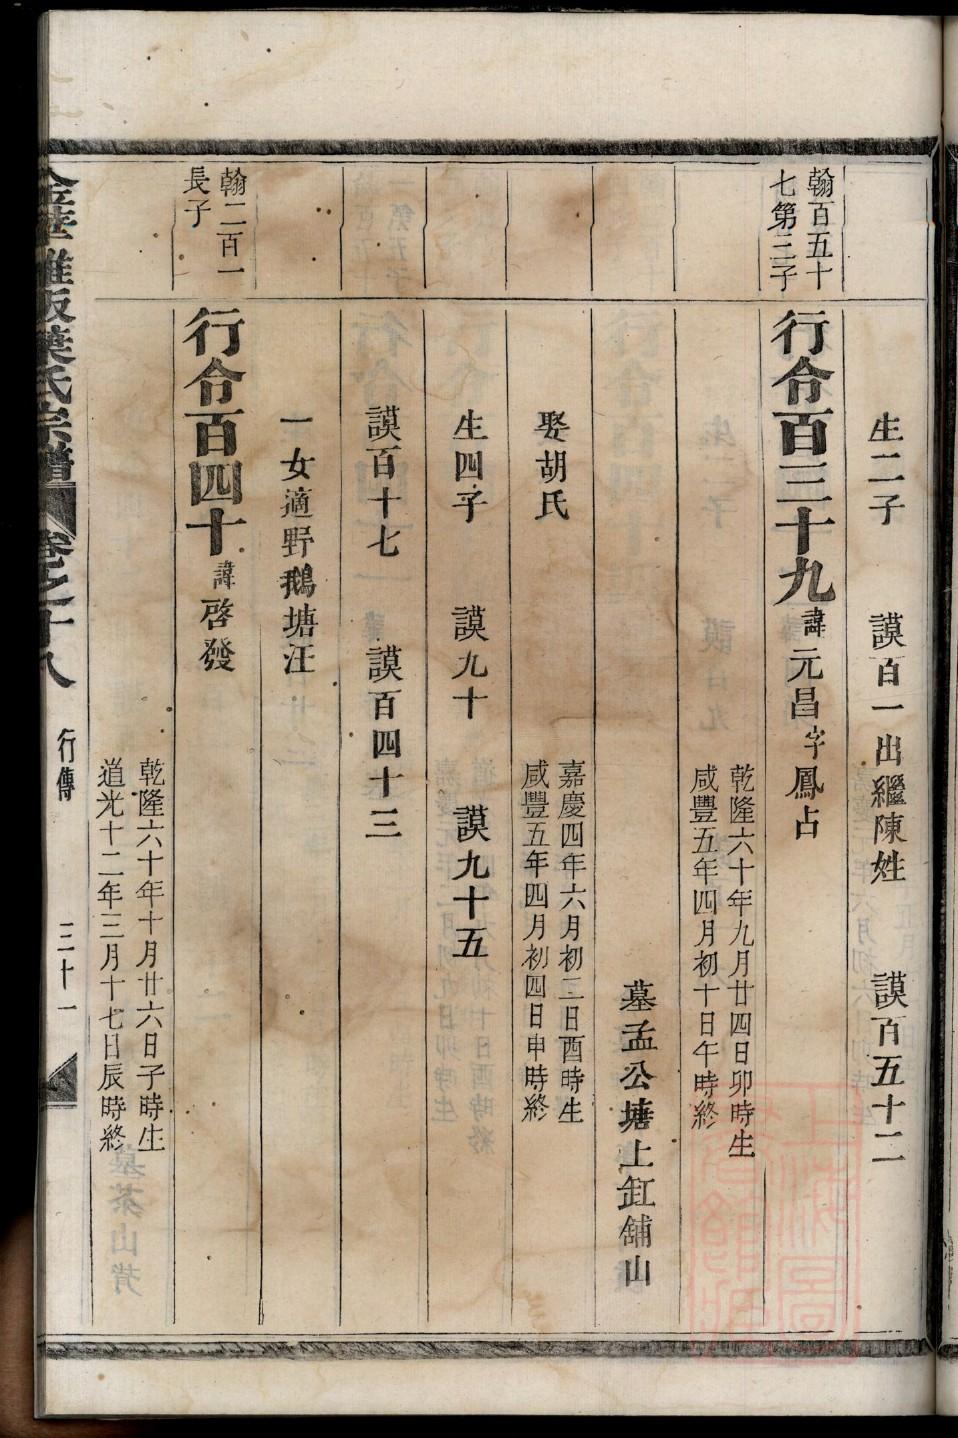 生二子 謨百一出繼陳姓 謨百五十二
翰百五十
七第三子
行令百三十九諱元昌字鳳占
乾隆六十年九月廿四日卯時生
咸豐五年四月初十日午時終
墓孟公塘上缸舖山
娶胡氏
嘉慶四年六月初三日酉時生
咸豐五年四月初四日申時終
生四子 謨九十 謨九十五
謨百十七 謨百四十三
一女適野鵝塘汪
翰二百一
長子
行令百四十諱啓發
乾隆六十年十月廿六日子時生
道光十二年三月十七日辰時終
葉氏宗譜 卷之十八 行傳 三十一